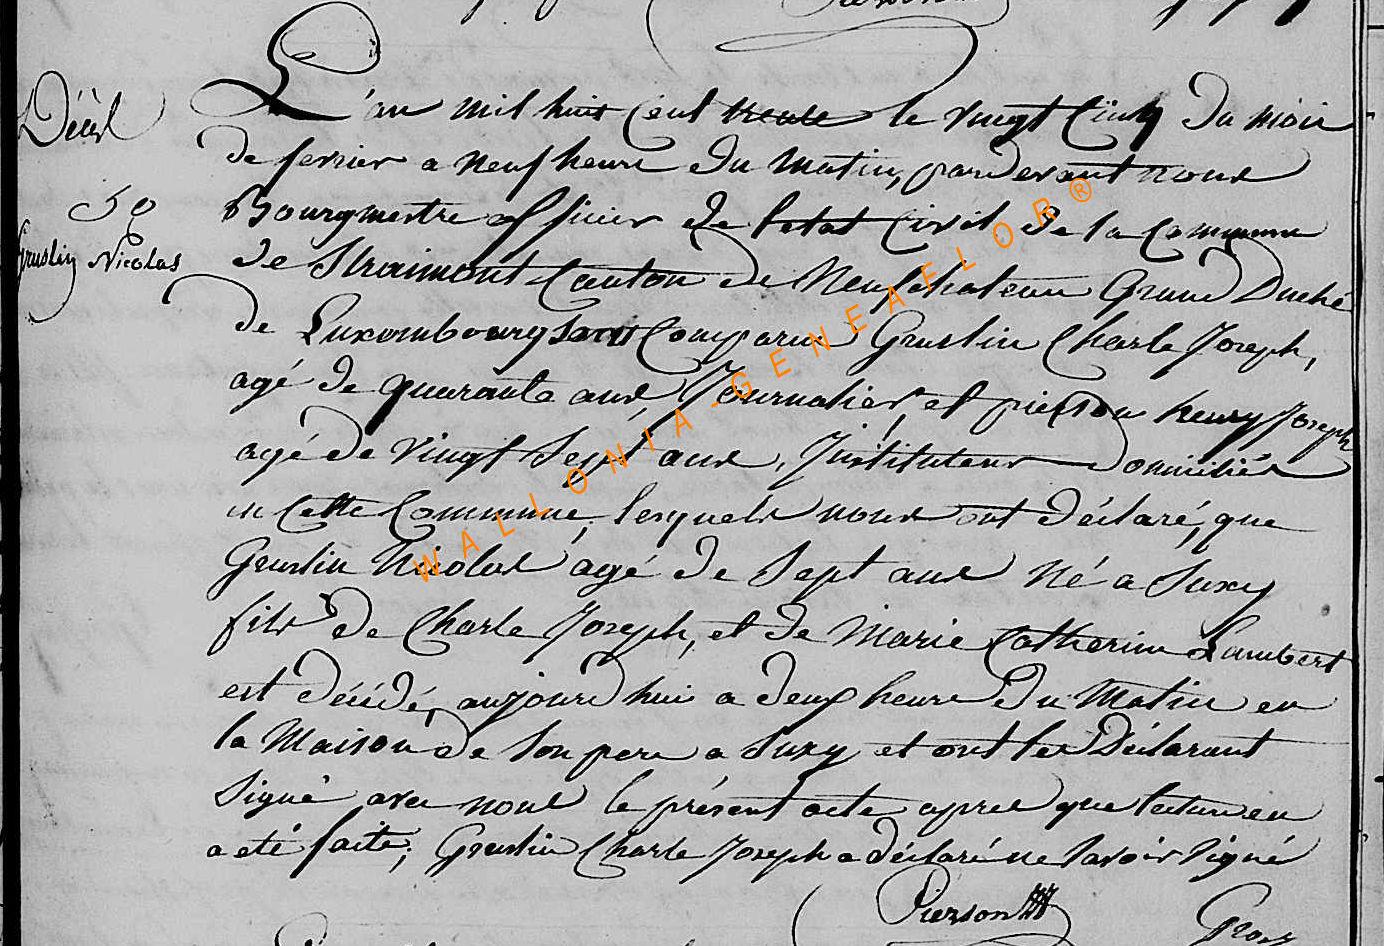 Décès
50
Gruslin Nicolas
L'an mil huit cent trente le vingt Cinq du mois
de fevrier a neuf heure du matin, pardevant nous
Bourgmestre officier de l'etat Civil de la Commune
de Straimont Canton de Neufchateau Grand Duché
de Luxembourg sont Comparu Gruslin Charle Joseph,
agé de quarante ans Journalier, et pierson henry Joseph
agé de vingt Sept ans, Instituteur Domiciliés
en Cette Commune, lesquels nous ont déclaré, que
Gruslin Nicolas agé de Sept ans né a Suxy
fils de Charle Joseph, et de Marie Catherine Lambert
est décédé, aujourd'hui a deux heure du Matin en
la Maison de Son pere a Suxy et ont les Déclarant
Signé avec nous le présent acte apres que lecture en
a eté faite; Gruslin Charle Joseph a déclaré ne Savoir Signé
Pierson
WALLONIA-GENEAFLOR®